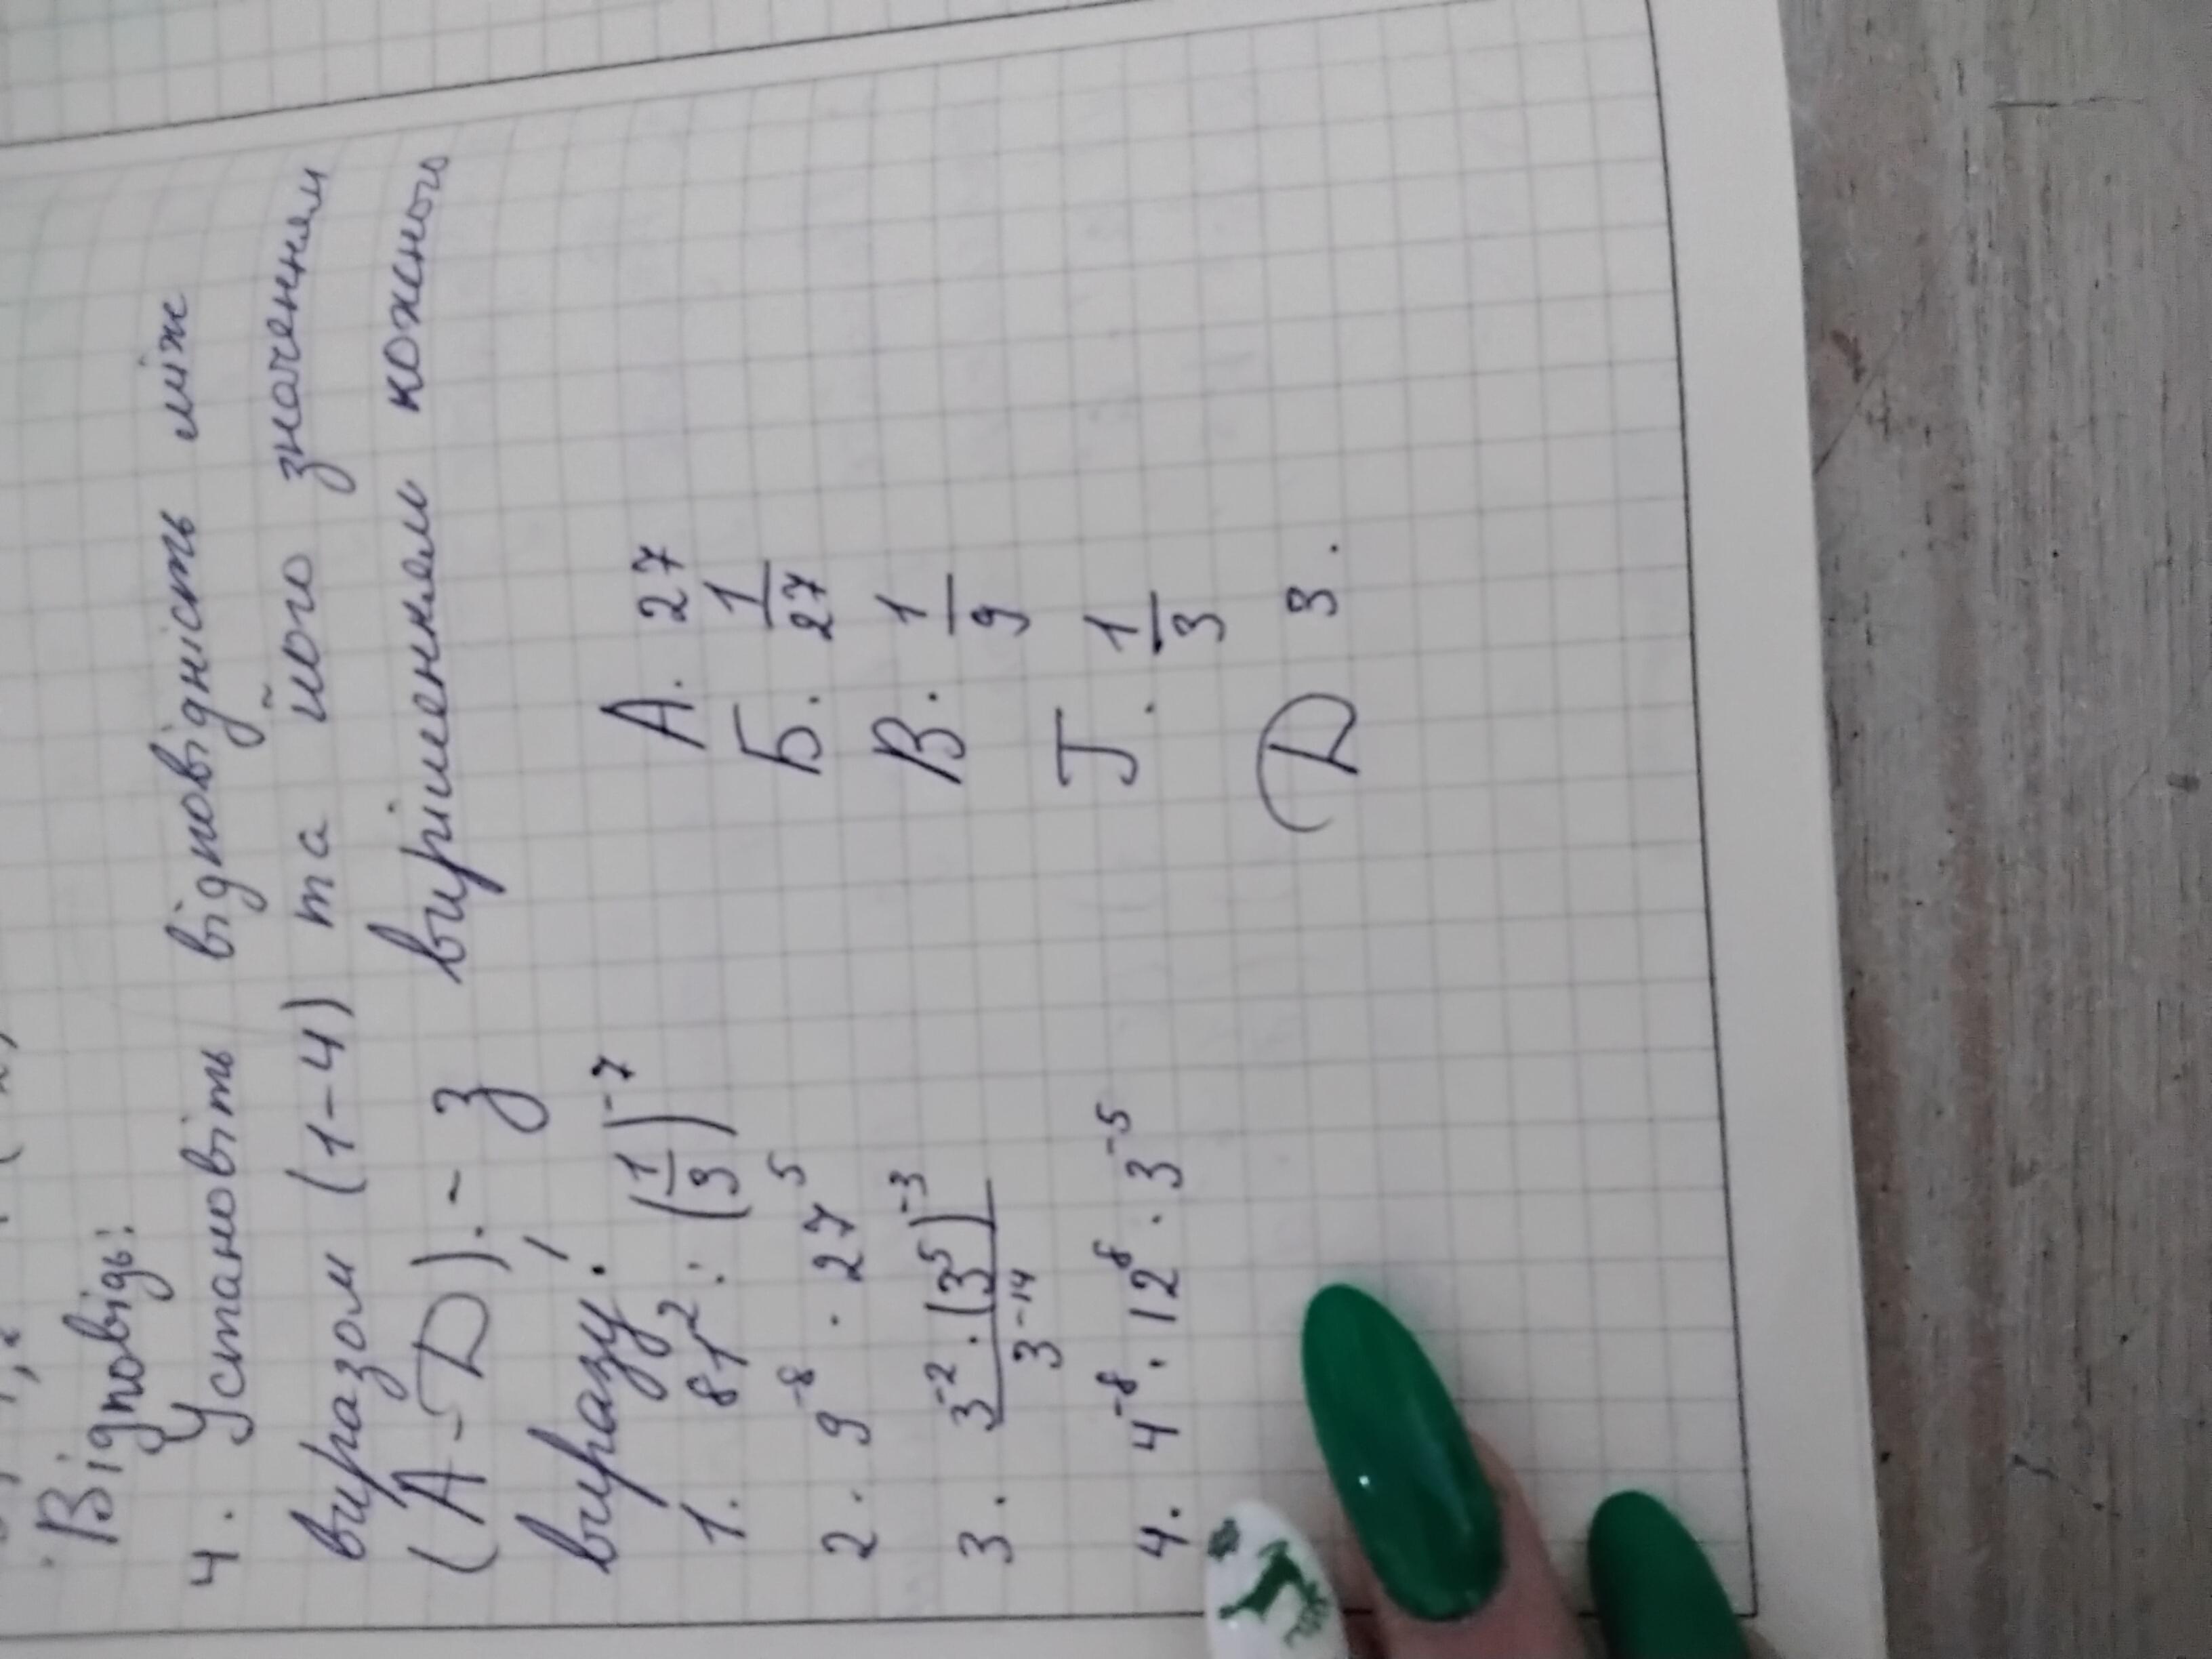 Відповідь:
4. Установіть відповідність між
виразом (1-4) та його значенням
(А-Д).- З вирішенням кожного
виразу!
1. 81² : (1/3)⁻⁷ А. 27
2. 9⁻⁸ · 27⁵ Б. 1/27
3. 3⁻² · (3⁵)⁻³ / 3⁻¹⁴ В. 1/9
4. 4⁻⁸ · 12⁸ · 3⁻⁵ Г. 1/3
Д 3.